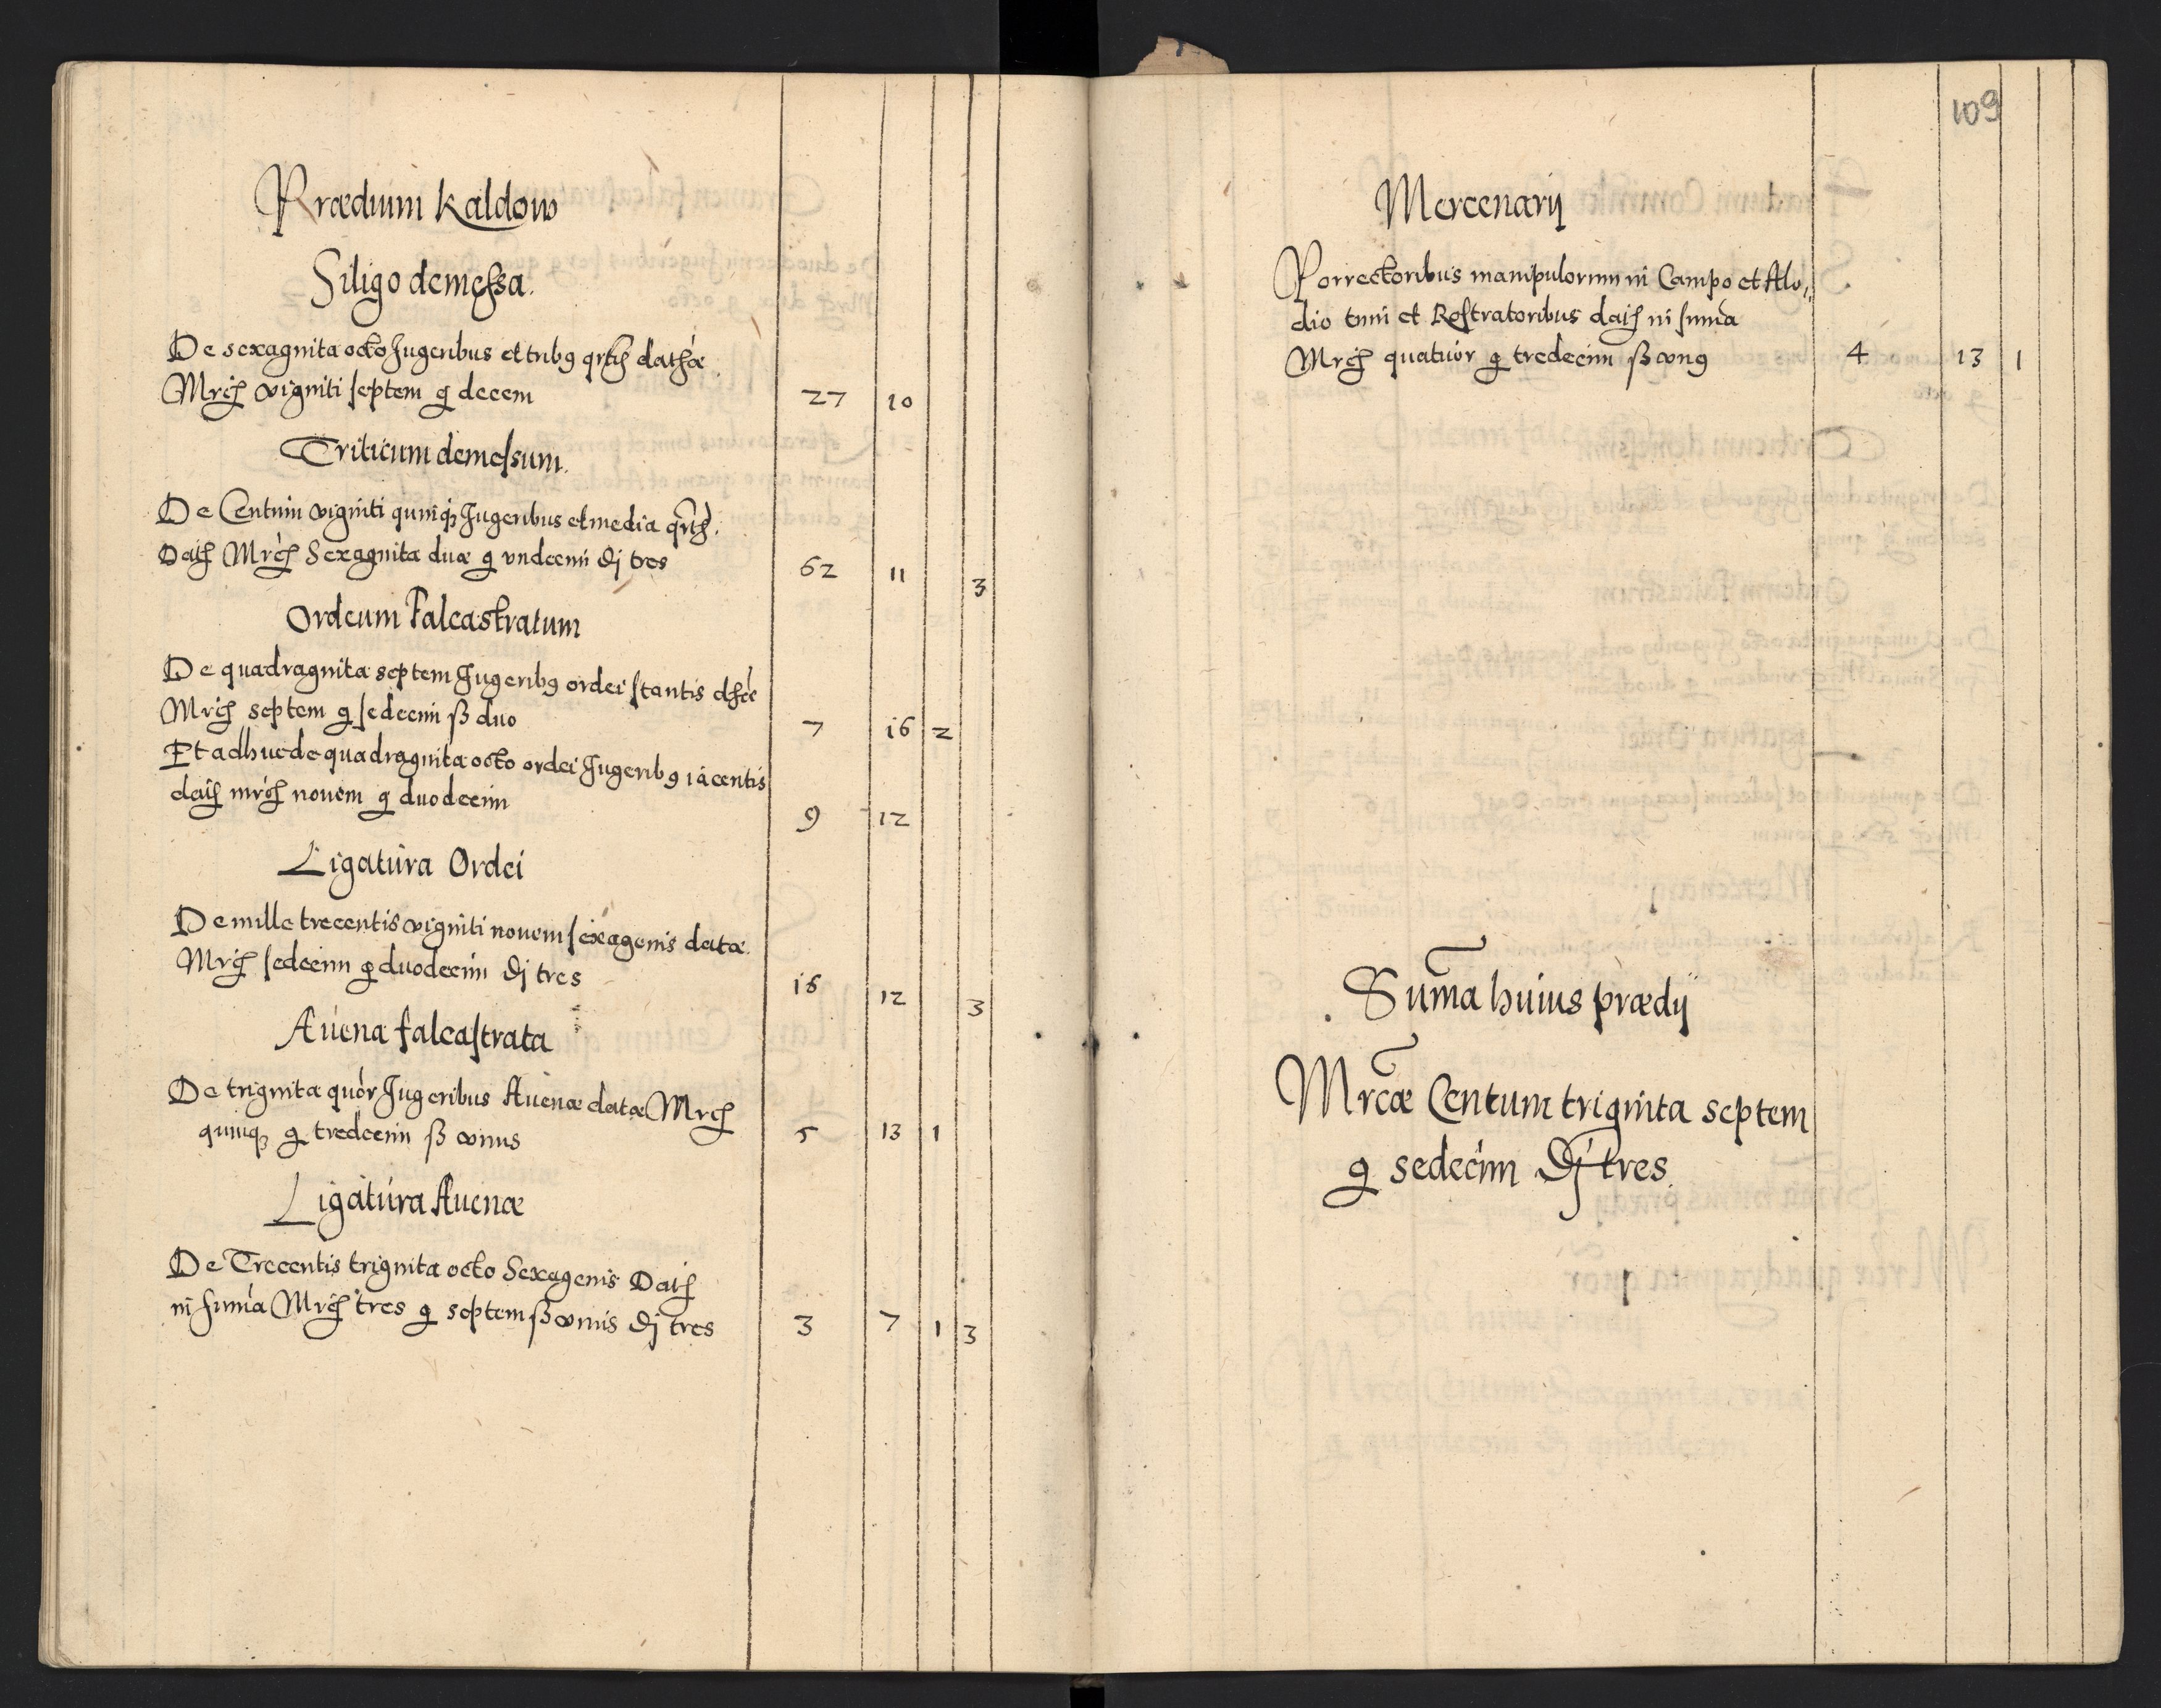 Prædium Kaldow
Siligo demessa.
De sexaginta octo Jugeribus et tribꝫ qrtis datæ
Mrcis viginti septem g decem 27 10
Triticum demessum.
De Centum viginti quinqꝫ Jugeribus et media qrtis.
Datis Mrcis Sexaginta duæ g vndecim ₰ tres 62 11 3
Ordeum Falcastratum
De quadraginta septem Jugeribꝫ ordei stantis
Mrcis septem g sedecim ß duo 7 16 2
Et adhuc de quadraginta octo ordei Jugeribꝫ iacentis
datis mrcis nouem g duodecim 9 12
Ligatura Ordei
De mille trecentis viginti nouem sexagenis datæ.
Mrcis sedecim g duodecim ₰ tres 16 12 3
Auena falcastrata
De triginta quor Jugeribus Auenæ datæ Mrcis
quinqꝫ g tredecim ß vnus 5 13 1
Ligatura Auenæ
De Trecentis triginta octo Sexagenis Datis
in suma Mrcis tres g septem ß vnus ₰ tres 3 7 1 3
109
Mercenarij
Porrectoribus manipulorum in Campo et Allo,,
dio tum et Rastratoribus datis in suma
Mrcis quatuor g tredecim ß vnꝫ 4 13 1
Suma huius prædij
Mrcæ Centum triginta septem
g sedecim ₰ tres.